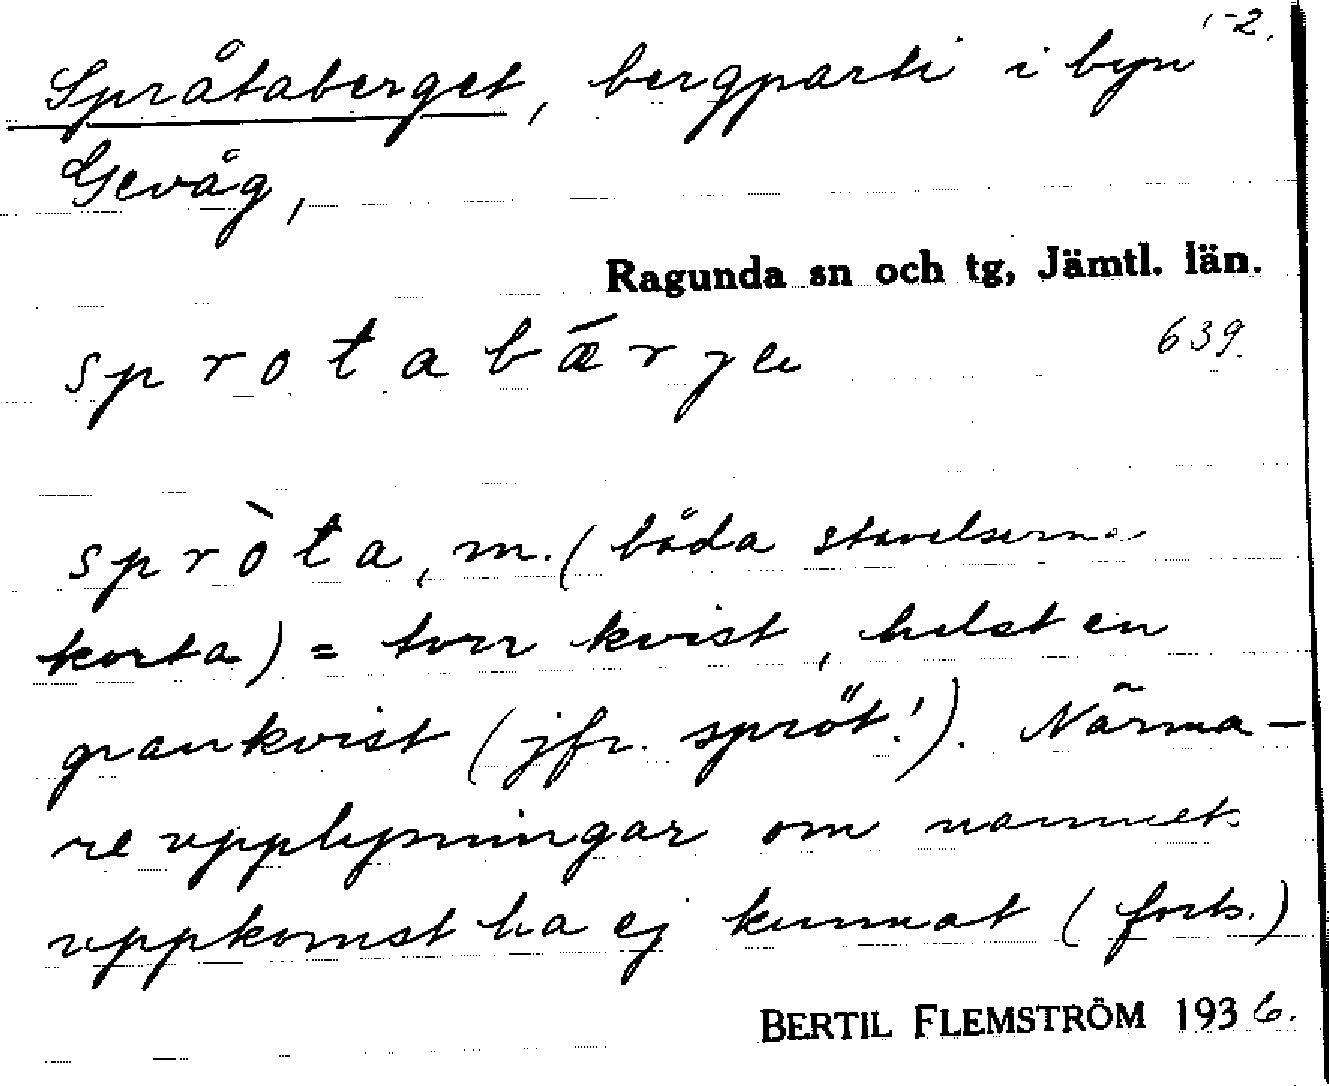 1-2.
Språtaberget, bergparti i byn
Gevåg,
Ragunda sn och tg, Jämtl. län.
sprotabǽrjen
639.
spròta, m. (båda stavelserna
korta) = torr kvist, helst en
grankvist (jfr. spröt!). Närma-
re upplysningar om namnets
uppkomst ha ej kunnat (forts.)
BERTIL FLEMSTRÖM 1936.